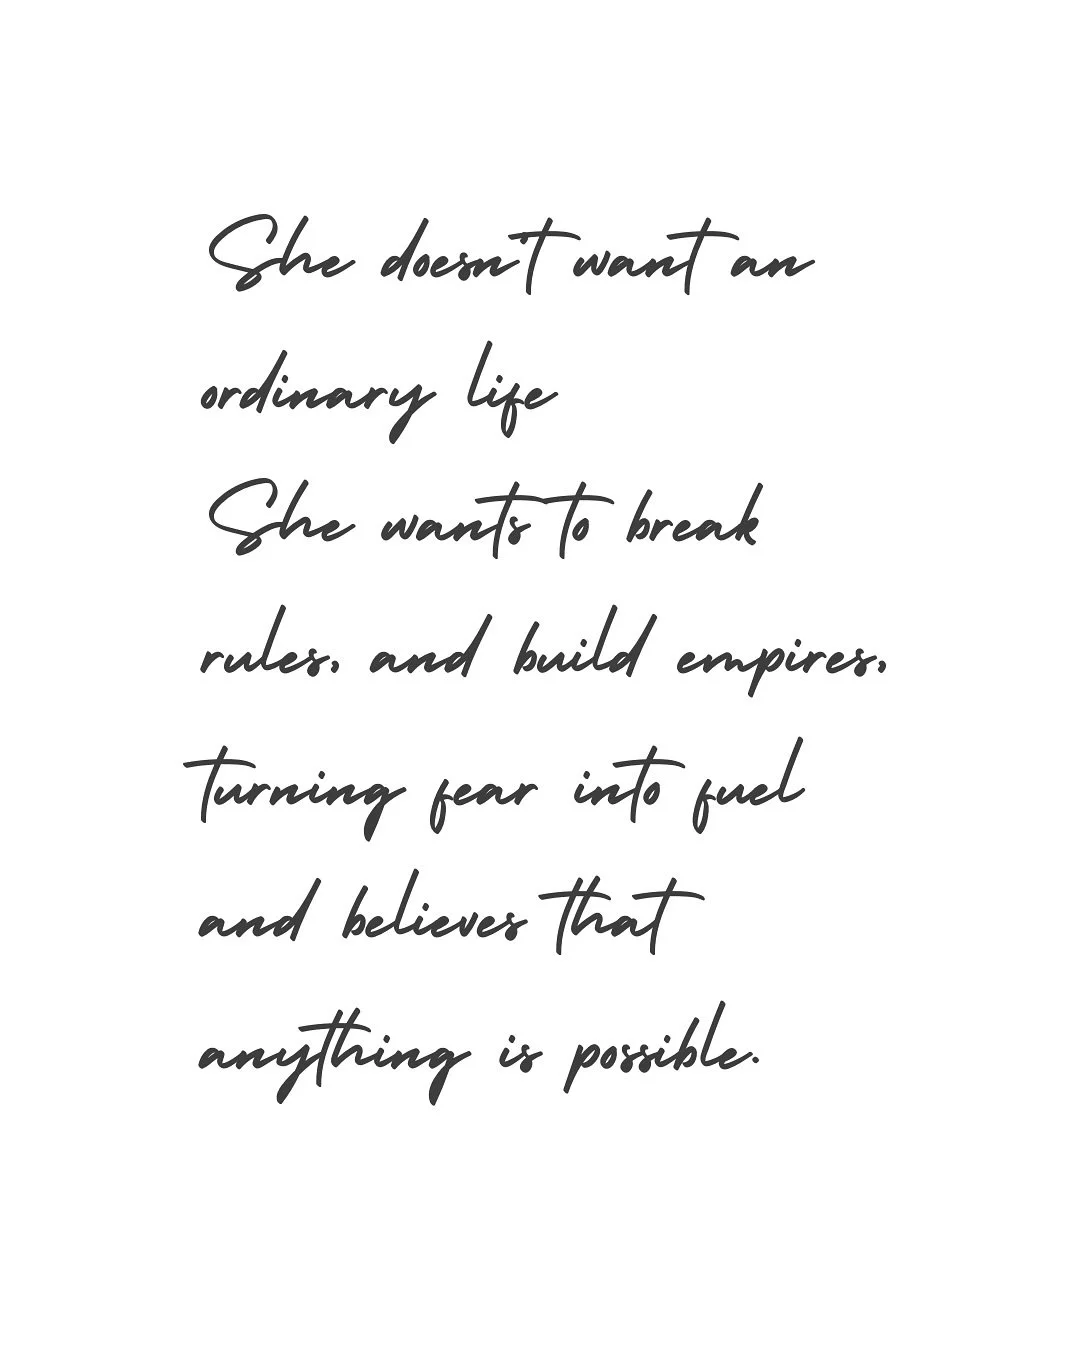 She doesn't want an
ordinary life
She wants to break
rules, and build empires,
turning fear into fuel
and believes that
anything is possible.